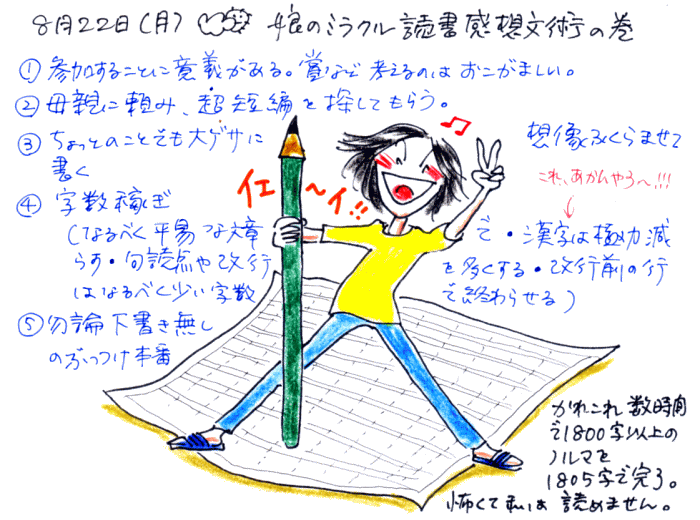 8月22日(月) 娘のミラクル読書感想文術の巻
① 参加することに意義がある。賞など考えるのはおこがましい。
② 母親に頼み、超短編を探してもらう。
③ ちょっとのことでも大ゲサに 想像ふくらませて
書く
これ、あかんやろ〜!!!
イエ〜イ!!
④ 字数稼ぎ
(なるべく平易な文章で・漢字は極力減
らす・句読点や改行を多くする・改行前の行
はなるべく少い字数で終わらせる)
⑤ 勿論下書き無し
のぶっつけ本番
かれこれ数時間
で1800字以上の
ノルマを
1805字で完了。
怖くて私は読めません。